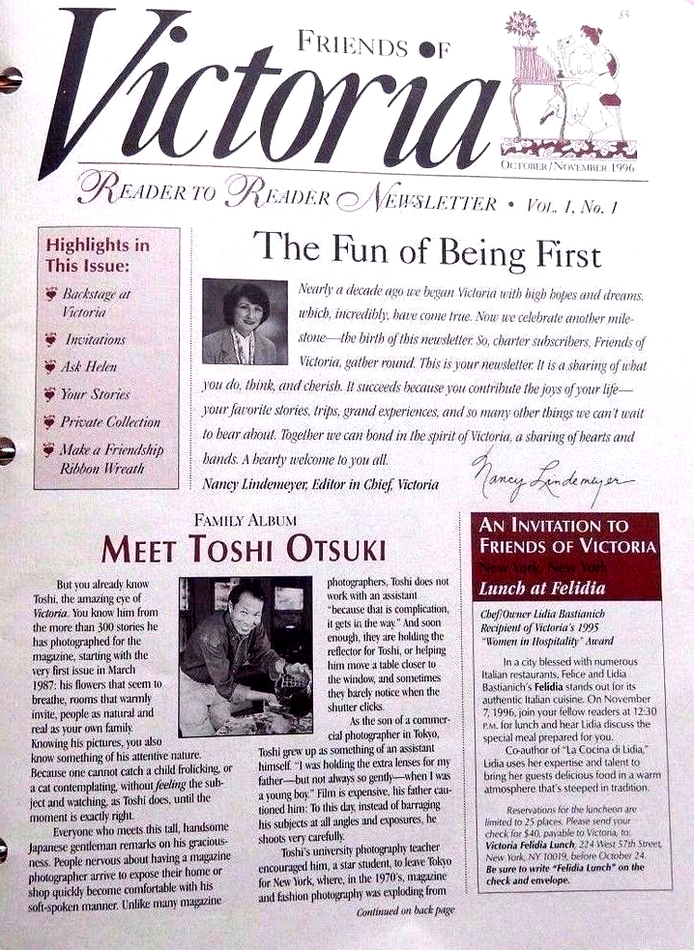 FRIENDS OF
Victoria
OCTOBER/NOVEMBER 1996
READER TO READER NEWSLETTER • VOL. 1, NO. 1
Highlights in
This Issue:
Backstage at
Victoria
Invitations
Ask Helen
Your Stories
Private Collection
Make a Friendship
Ribbon Wreath
The Fun of Being First
Nearly a decade ago we began Victoria with high hopes and dreams,
which, incredibly, have come true. Now we celebrate another mile-
stone—the birth of this newsletter. So, charter subscribers, Friends of
Victoria, gather round. This is your newsletter. It is a sharing of what
you do, think, and cherish. It succeeds because you contribute the joys of your life—
your favorite stories, trips, grand experiences, and so many other things we can't wait
to hear about. Together we can bond in the spirit of Victoria, a sharing of hearts and
hands. A hearty welcome to you all.
Nancy Lindemeyer, Editor in Chief, Victoria
Nancy Lindemeyer
FAMILY ALBUM
MEET TOSHI OTSUKI
But you already know
Toshi, the amazing eye of
Victoria. You know him from
the more than 300 stories he
has photographed for the
magazine, starting with the
very first issue in March
1987: his flowers that seem to
breathe, rooms that warmly
invite, people as natural and
real as your own family.
Knowing his pictures, you also
know something of his attentive nature.
Because one cannot catch a child frolicking, or
a cat contemplating, without feeling the sub-
ject and watching, as Toshi does, until the
moment is exactly right.
Everyone who meets this tall, handsome
Japanese gentleman remarks on his gracious-
ness. People nervous about having a magazine
photographer arrive to expose their home or
shop quickly become comfortable with his
soft-spoken manner. Unlike many magazine
photographers, Toshi does not
work with an assistant
"because that is complication,
it gets in the way." And soon
enough, they are holding the
reflector for Toshi, or helping
him move a table closer to
the window, and sometimes
they barely notice when the
shutter clicks.
As the son of a commer-
cial photographer in Tokyo,
Toshi grew up as something of an assistant
himself. "I was holding the extra lenses for my
father—but not always so gently—when I was
a young boy." Film is expensive, his father cau-
tioned him: To this day, instead of barraging
his subjects at all angles and exposures, he
shoots very carefully.
Toshi's university photography teacher
encouraged him, a star student, to leave Tokyo
for New York, where, in the 1970's, magazine
and fashion photography was exploding from
Continued on back page
AN INVITATION TO
FRIENDS OF VICTORIA
New York, New York
Lunch at Felidia
Chef/Owner Lidia Bastianich
Recipient of Victoria's 1995
"Women in Hospitality" Award
In a city blessed with numerous
Italian restaurants, Felice and Lidia
Bastianich's Felidia stands out for its
authentic Italian cuisine. On November
7, 1996, join your fellow readers at 12:30
P.M. for lunch and hear Lidia discuss the
special meal prepared for you.
Co-author of "La Cocina di Lidia,"
Lidia uses her expertise and talent to
bring her guests delicious food in a warm
atmosphere that's steeped in tradition.
Reservations for the luncheon are
limited to 25 places. Please send your
check for $40, payable to Victoria, to:
Victoria Felidia Lunch, 224 West 57th Street,
New York, NY 10019, before October 24.
Be sure to write "Felidia Lunch" on the
check and envelope.